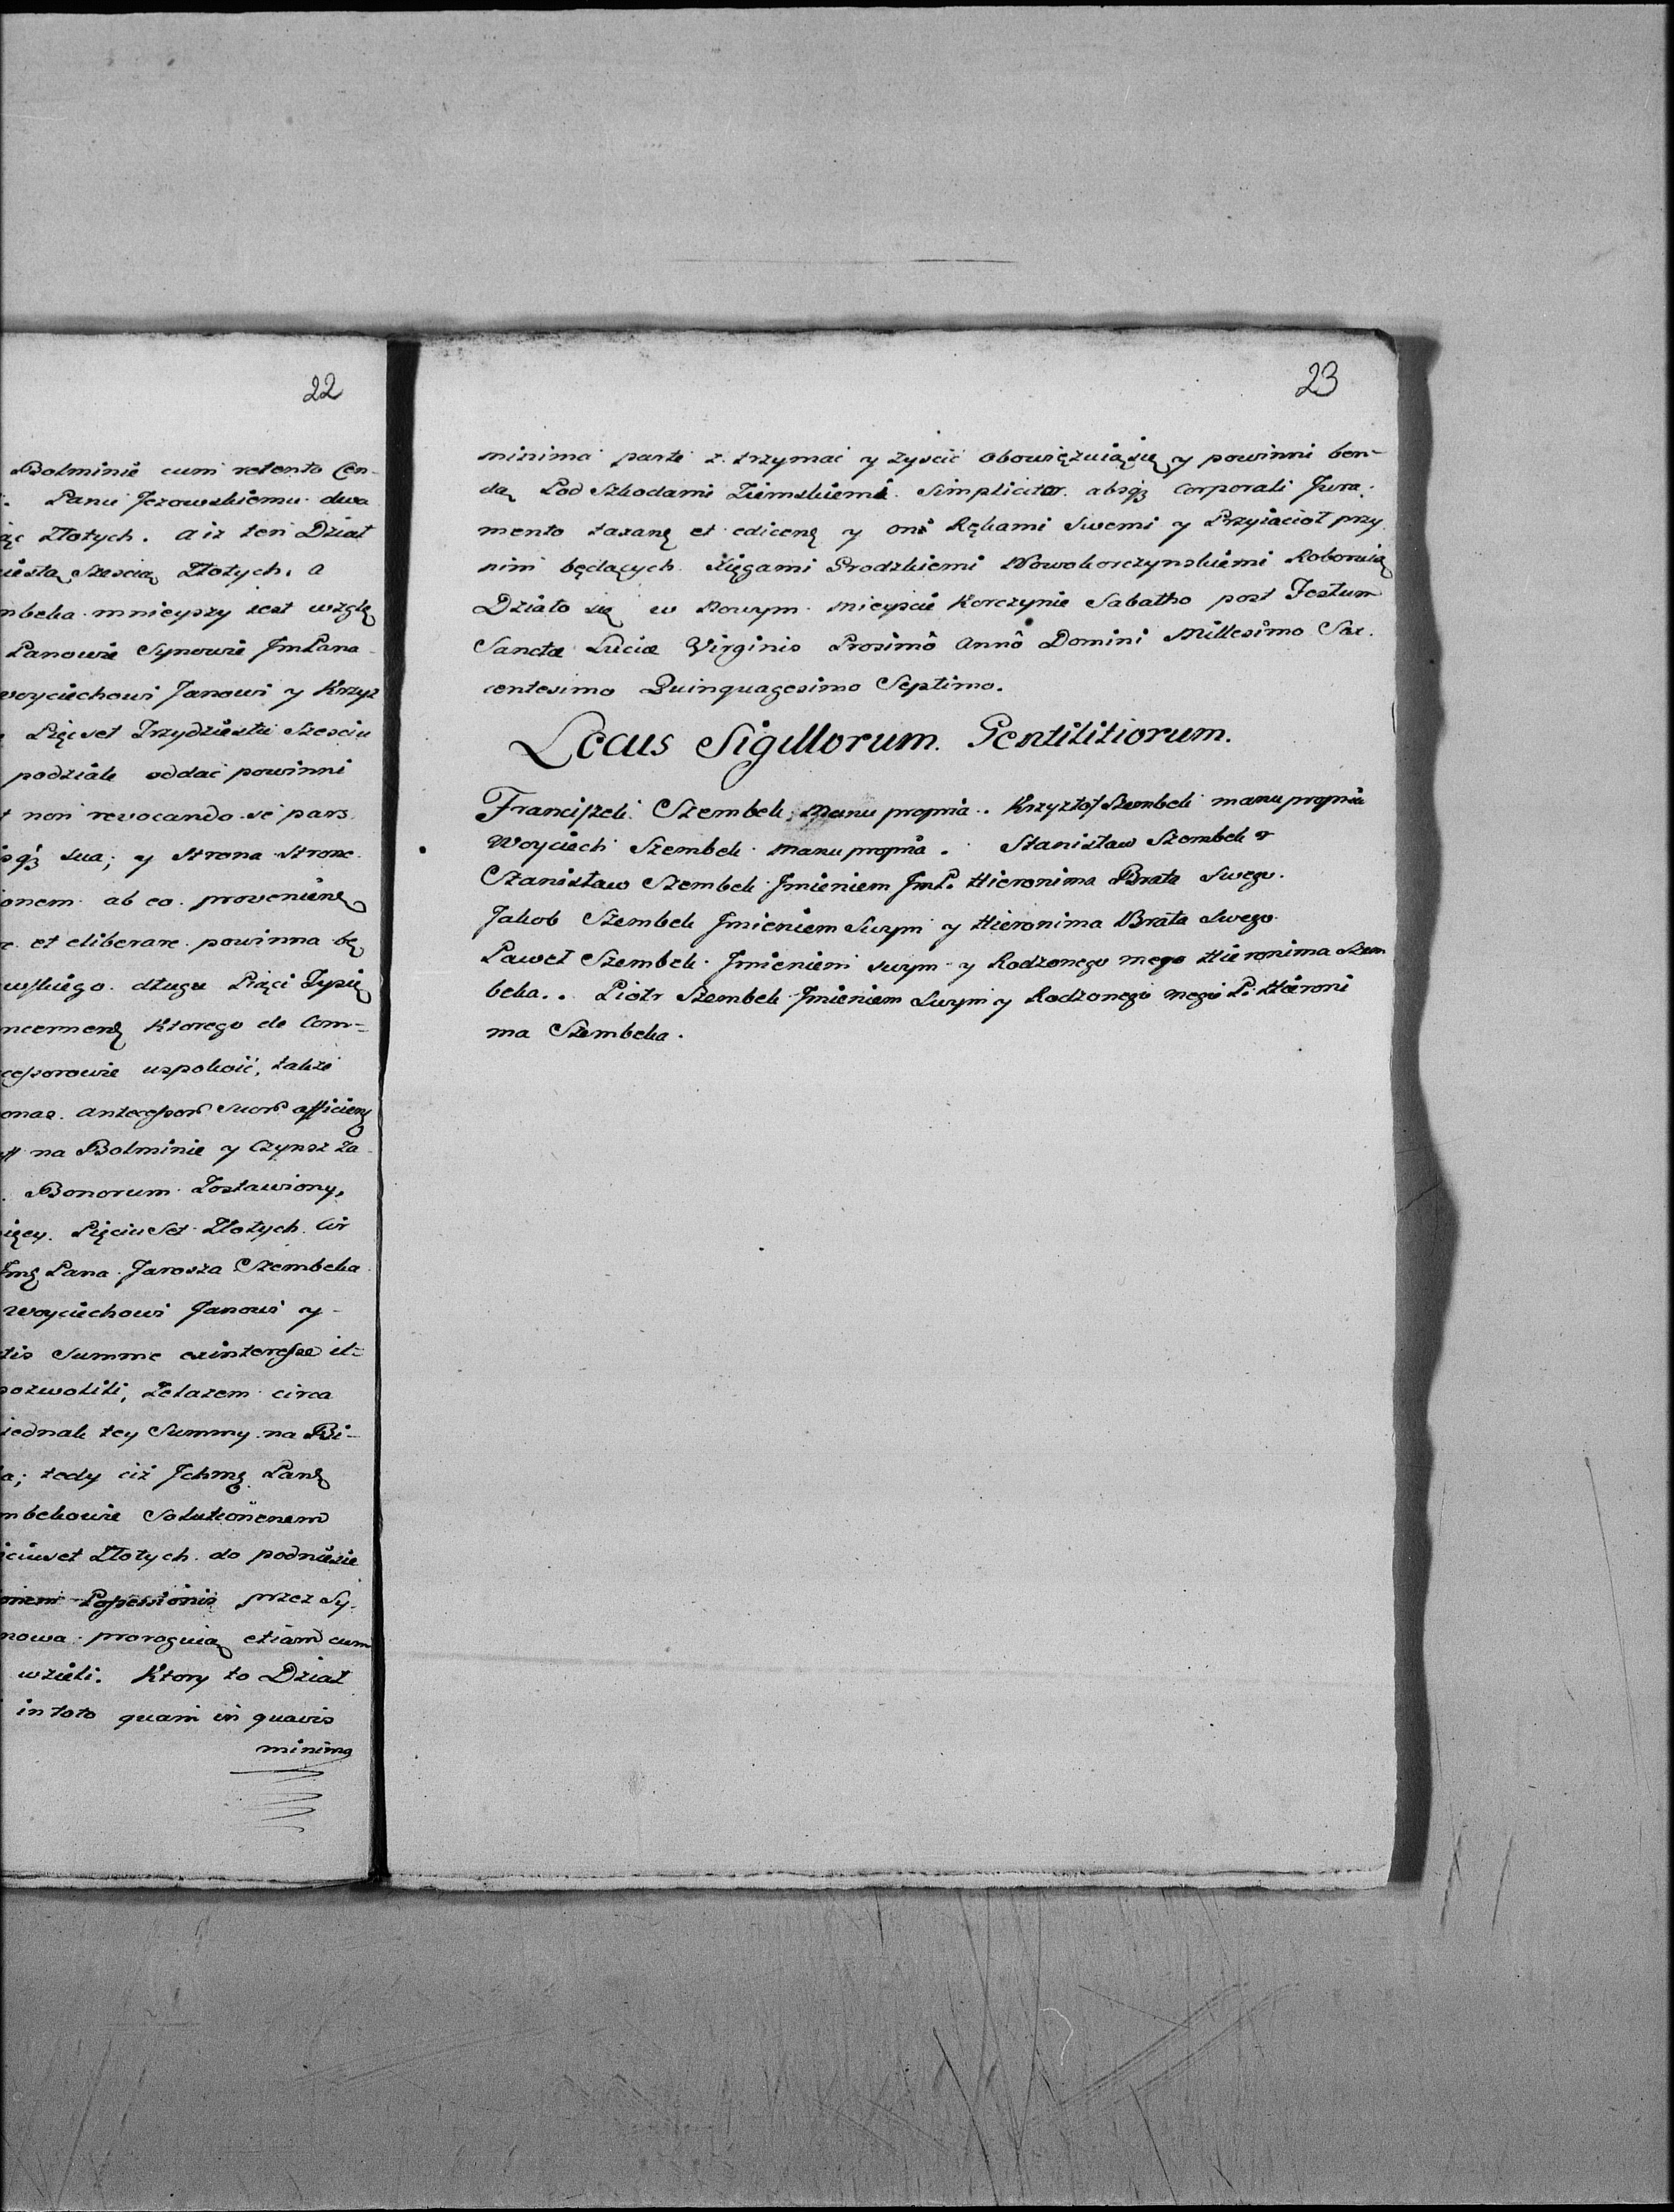 22
Bolminie cum retento Cen-
Panu Jezowskiemu dwa
Złotych. a iz ten Dział
Szescią Złotych. a
mnieyszy iest wzglę
Panowie Synowie JmPana
Woyciechowi Janowi y Krzyz
Pięcset Trzydziestu Szesciu
podziale oddać powinni
non revocando se pars
sua; y Strona Strone
ab eo provenienę
et eliberare powinna bę
długu Pięci Tysię
Ktorego de Com=
uspokoić, także
antecessorũ suorũ afficienę
na Bolminie y Czynsz Za
Bonorum Zostawiony,
Pięciu Set Złotych Cir
Jmę Pana Jarosza Szembeka
Woyciechowi Janowi y
Summe exinteresse it=
pozwolili, Zelazem circa
iednak tey Summy na Bi-
tedy ciż Ichmę Panę
Solutionenem
Złotych do podniesie
Possessionis przez Sy
proroguią etiam cum
wzieli. Ktory to Dział
in toto quam in quavis
minima
23
minima parte z. trzymać y zyscić obowięzuią się y powinni ben-
dą Pod Szkodami Ziemskiemi. Simpliciter absqȝ Corporali Jura-
mento taxanę et edicenę y oni Rękami Swemi y Przyiacioł przy
nim będących Xięgami Grodzkiemi Nowokorczynskiemi Roboruią
Działo się w Nowym Mieyscie Korczynie Sabatho post Festum
Sanctæ Luciæ Virginis Proximô Annô Domini Millesimo Sex-
centesimo Quinquagesimo Septimo.
Locus Sigillorum Gentilitiorum.
Franciszek Szembek manu propria. Krzysztof Szembek manu propria
Woyciech Szembek manu propria. Stanisław Szembek
Stanisław Szembek Jmieniem JmP. Hieronima Brata Swego.
Jakob Szembek Jmieniem Swym y Hieronima Brata Swego
Paweł Szembek Jmieniem swym y Rodzonego mego Hieronima Szem
beka. Piotr Szembek Jmieniem Swym y Rodzonego mego P. Hieroni
ma Szembeka.